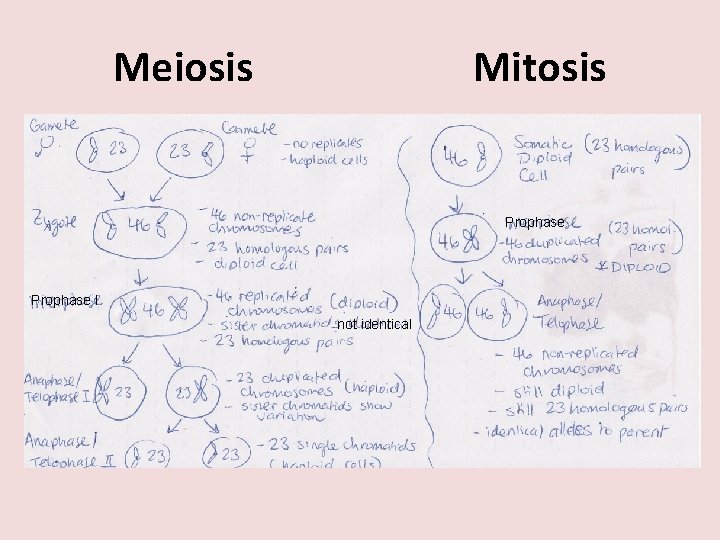 Meiosis
Mitosis
Gamete
♂
23
23
Gamete
♀
- no replicates
- haploid cells
Zygote
46
- 46 non-replicate
chromosomes
- 23 homologous pairs
- diploid cell
Prophase I
46
- 46 replicated
chromosomes (diploid)
- sister chromatid not identical
- 23 homologous pairs
Anaphase/
Telophase I
23
23
- 23 duplicated
chromosomes (haploid)
- sister chromatids show
variation
Anaphase/
Telophase II
23
23
- 23 single chromatids
(haploid cells)
46
Somatic
Diploid
Cell
(23 homologous
pairs)
46
Prophase
(23 homol.
pairs)
- 46 duplicated
chromosomes
* DIPLOID
46
46
Anaphase/
Telophase
- 46 non-replicated
chromosomes
- still diploid
- still 23 homologous pairs
- identical alleles to parent